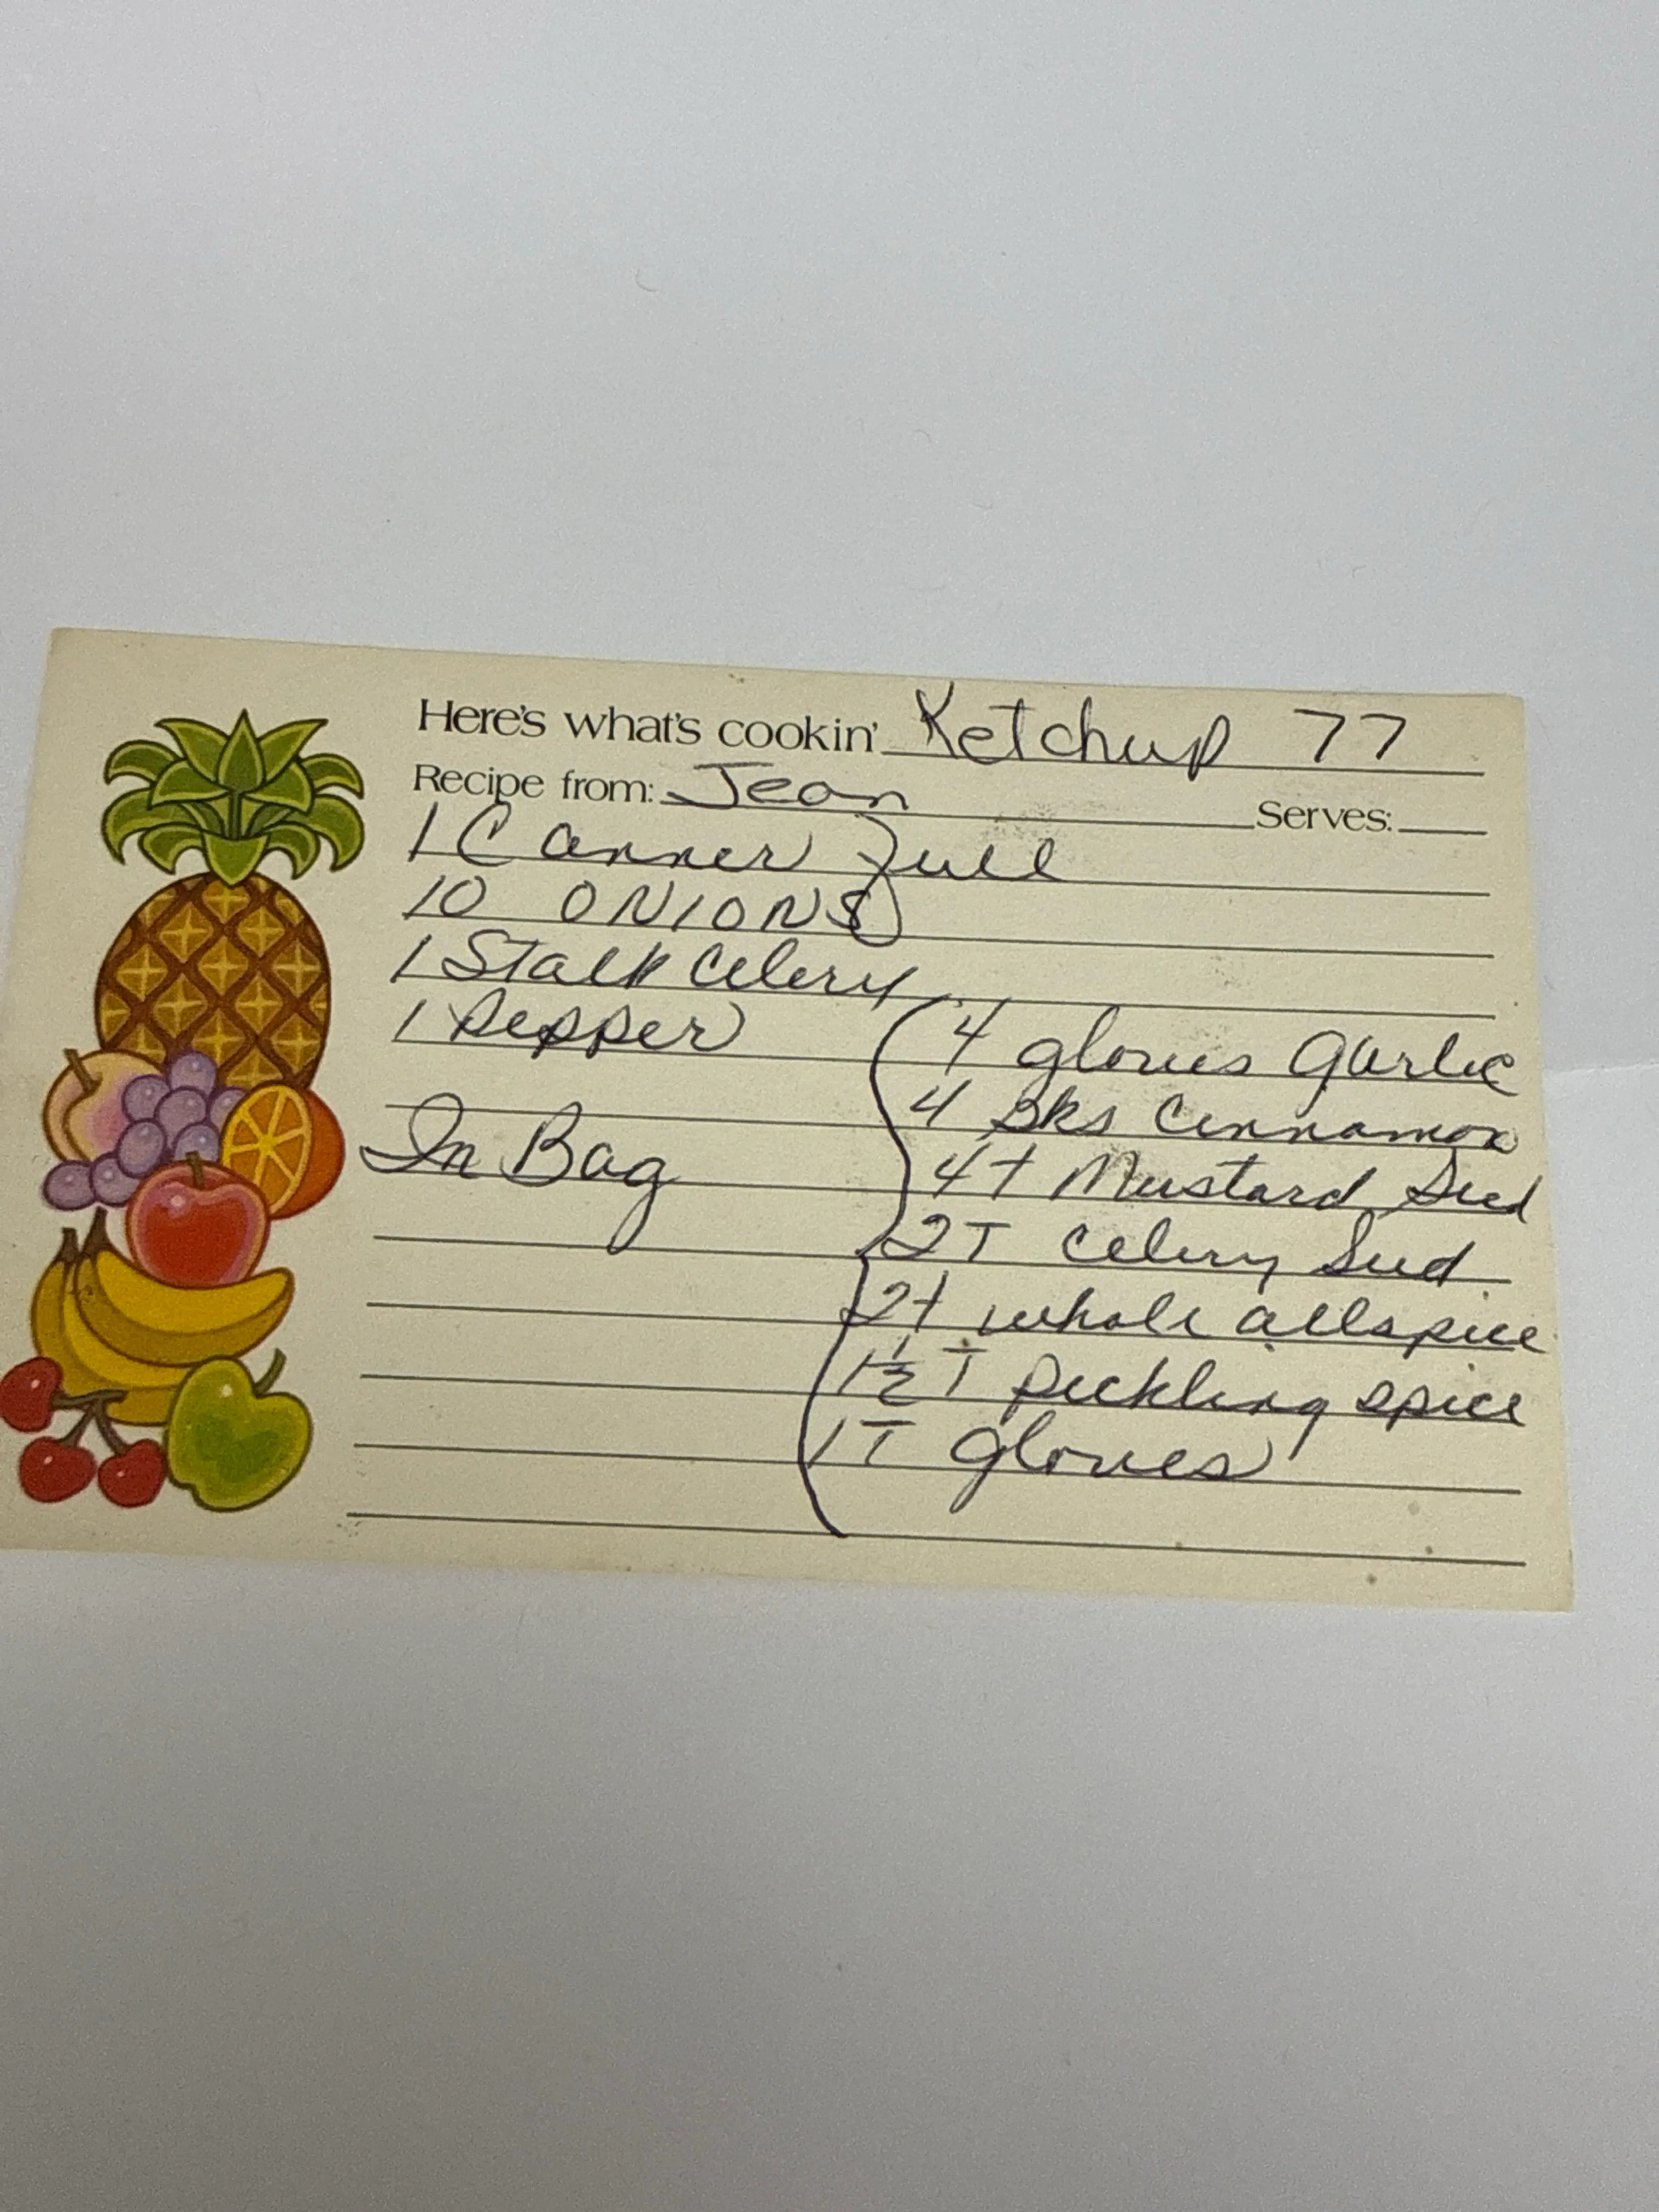 Here's what's cookin' Ketchup 77
Recipe from: Jean Serves:
1 Canner full
10 ONIONS
1 Stalk Celery
1 Pepper
In Bag
4 gloves Garlic
4 Sks Cinnamon
4t Mustard Seed
2T Celery Seed
2t whole allspice
1½ T pickling spice
1T gloves